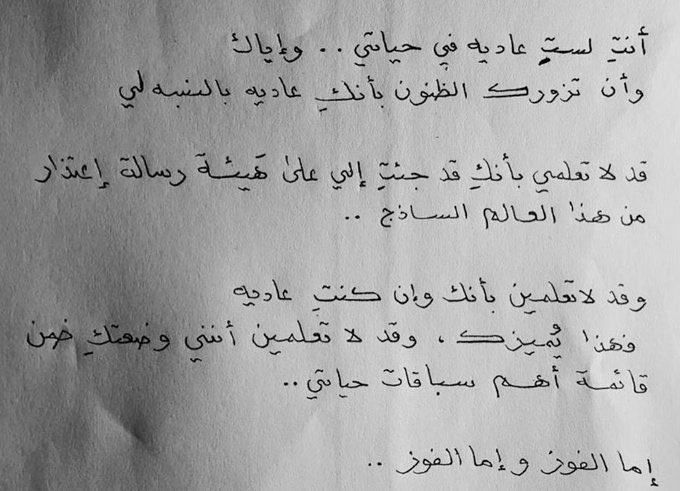 أنتِ لستِ عاديه في حياتي .. وإياك
وأن تزورك الظنون بأنكِ عاديه بالنسبه لي
قد لا تعلمي بأنكِ قد جئتِ إلي على هيئة رسالة إعتذار
من هذا العالم الساذج ..
وقد لاتعلمين بأنك وإن كنتِ عاديه
فهذا يُميزك ، وقد لا تعلمين أنني وضعتكِ ضمن
قائمة أهم سباقات حياتي ..
إما الفوز وإما الفوز ..